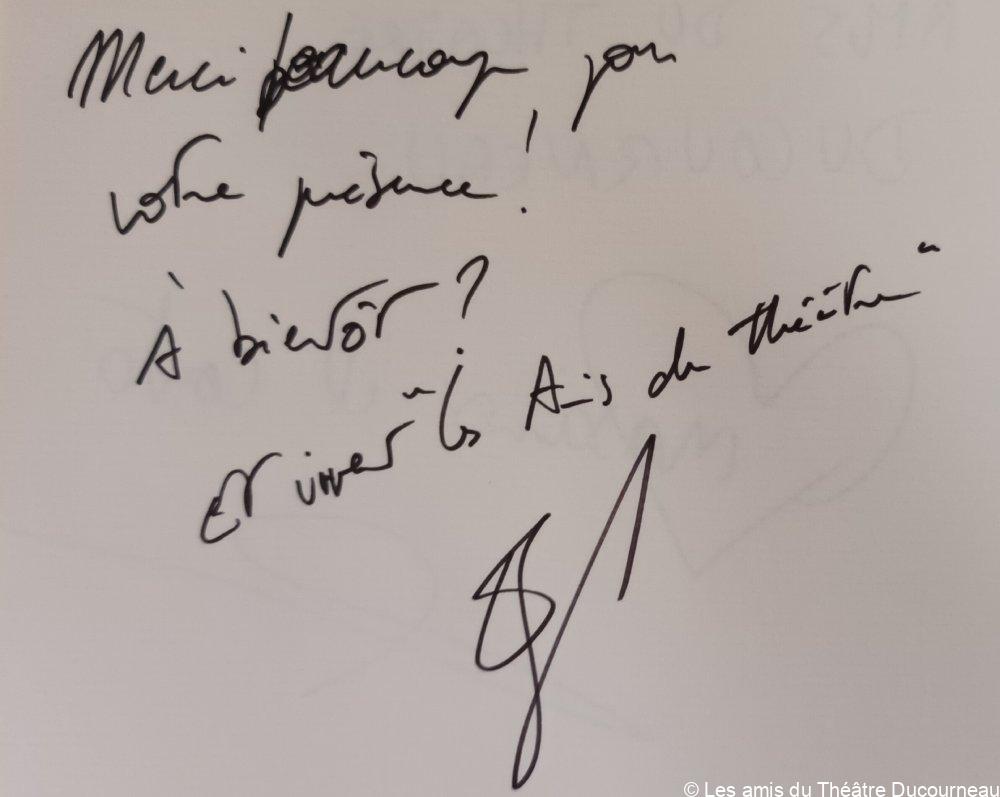 Merci beaucoup pour
votre présence !
À bientôt ?
Et vivent "les Amis du théâtre"
© Les amis du Théâtre Ducourneau